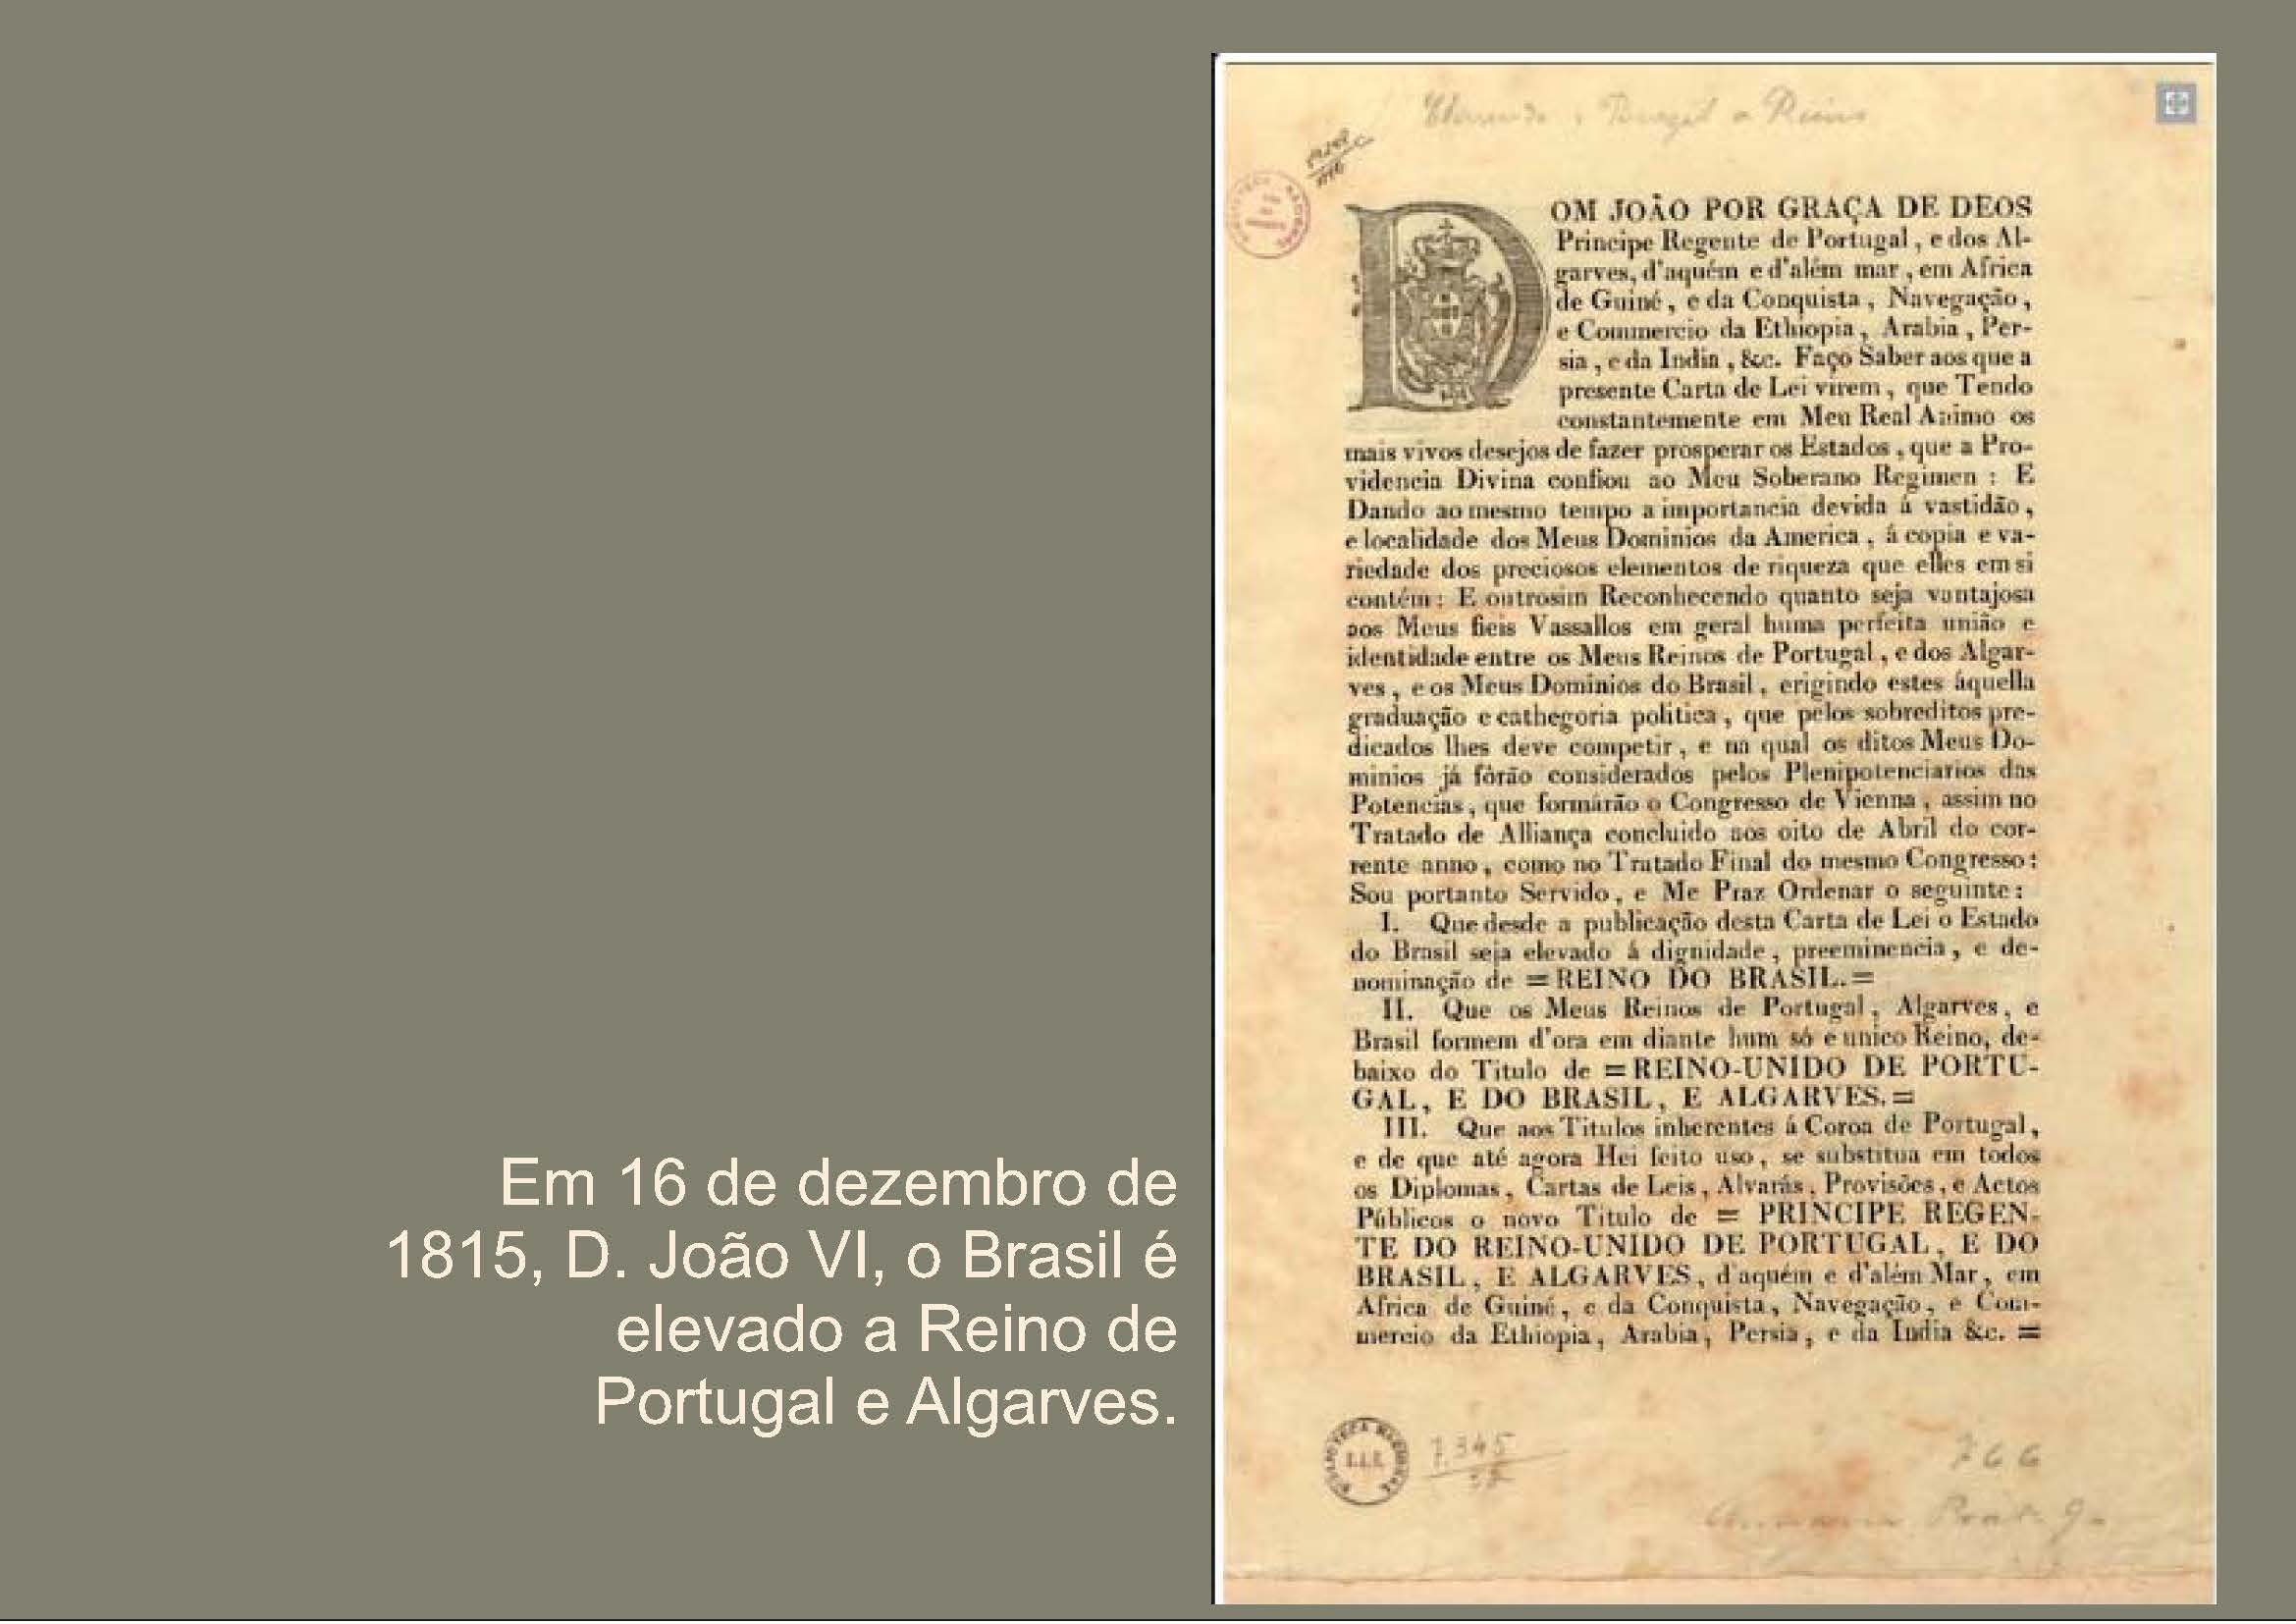 Em 16 de dezembro de
1815, D. João VI, o Brasil é
elevado a Reino de
Portugal e Algarves.
a Reino
DOM JOÃO POR GRAÇA DE DEOS
Principe Regente de Portugal, e dos Al-
garves, d'aquém e d'além mar, em Africa
de Guiné, e da Conquista, Navegação,
e Commercio da Ethiopia, Arabia, Per-
sia, e da India, &c. Faço Saber aos que a
presente Carta de Lei virem, que Tendo
constantemente em Meu Real Animo os
mais vivos desejos de fazer prosperar os Estados, que a Pro-
videncia Divina confiou ao Meu Soberano Regimen : E
Dando ao mesmo tempo a importancia devida á vastidão,
e localidade dos Meus Dominios da America, á copia e va-
riedade dos preciosos elementos de riqueza que elles em si
contém: E outrosim Reconhecendo quanto seja vantajosa
aos Meus fieis Vassallos em geral huma perfeita união e
identidade entre os Meus Reinos de Portugal, e dos Algar-
ves, e os Meus Dominios do Brasil, erigindo estes áquella
graduação e cathegoria politica, que pelos sobreditos pre-
dicados lhes deve competir, e na qual os ditos Meus Do-
minios já fôrão considerados pelos Plenipotenciarios das
Potencias, que formárão o Congresso de Vienna, assim no
Tratado de Alliança concluido aos oito de Abril do cor-
rente anno, como no Tratado Final do mesmo Congresso:
Sou portanto Servido, e Me Praz Ordenar o seguinte:
I. Que desde a publicação desta Carta de Lei o Estado
do Brasil seja elevado á dignidade, preeminencia, e de-
nominação de =REINO DO BRASIL.=
II. Que os Meus Reinos de Portugal, Algarves, e
Brasil formem d'ora em diante hum só e unico Reino, de-
baixo do Titulo de =REINO-UNIDO DE PORTU-
GAL, E DO BRASIL, E ALGARVES.=
III. Que aos Titulos inherentes á Coroa de Portugal,
e de que até agora Hei feito uso, se substitua em todos
os Diplomas, Cartas de Leis, Alvarás, Provisões, e Actos
Públicos o novo Titulo de = PRINCIPE REGEN-
TE DO REINO-UNIDO DE PORTUGAL, E DO
BRASIL, E ALGARVES, d'aquém e d'além Mar, em
Africa de Guiné, e da Conquista, Navegação, e Com-
mercio da Ethiopia, Arabia, Persia, e da India &c. =
BIBLIOTECA NACIONAL
7345
766